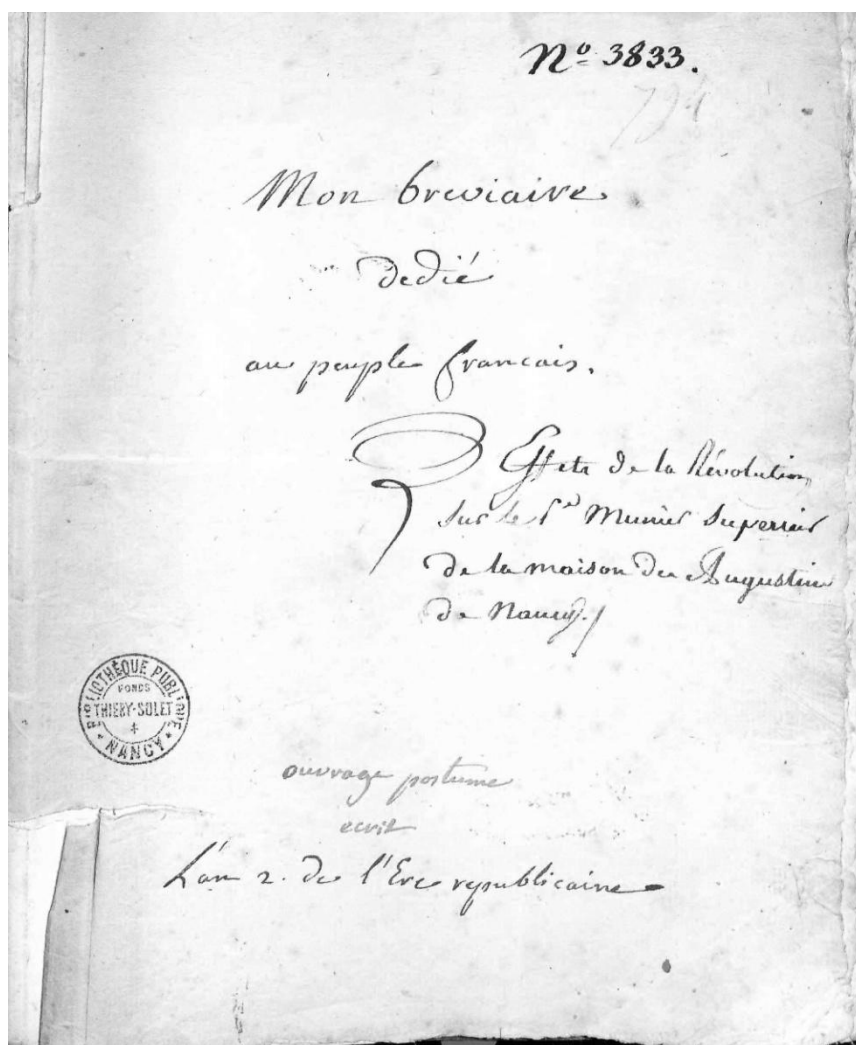 Nº 3833.
794
Mon breviaire
dedié
au peuple francais.
Effets de la Révolution
sur le Munier Superieur
de la maison des Augustins
de Nancy.
BIBLIOTHÈQUE PUBLIQUE
FONDS
THIERY-SOLET
NANCY
ouvrage postume
ecrit
L'an 2. de l'Ere republicaine